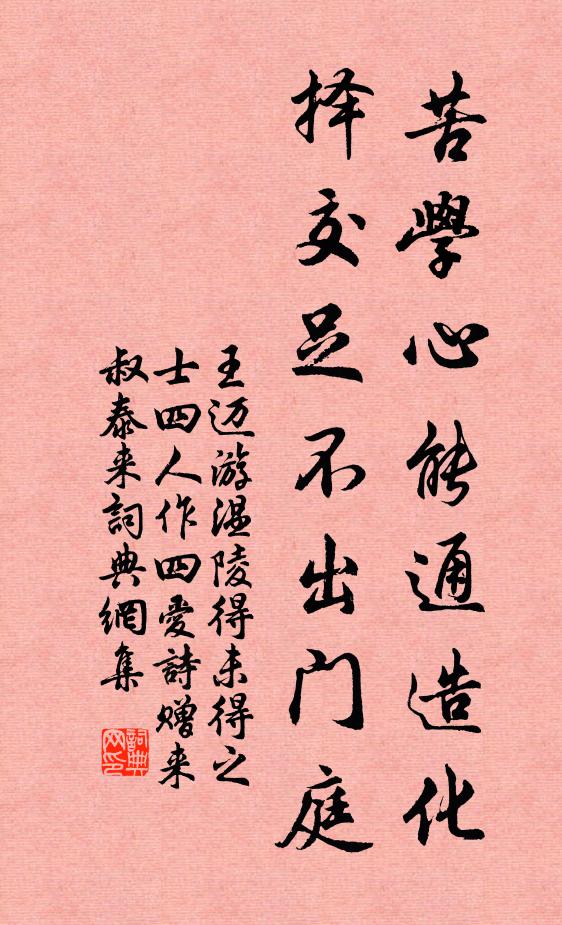 苦學心能通造化
择交足不出門庭
王迈游温陵得未得之
士四人作四愛詩赠来
叔泰来詞典網集
詞典網印